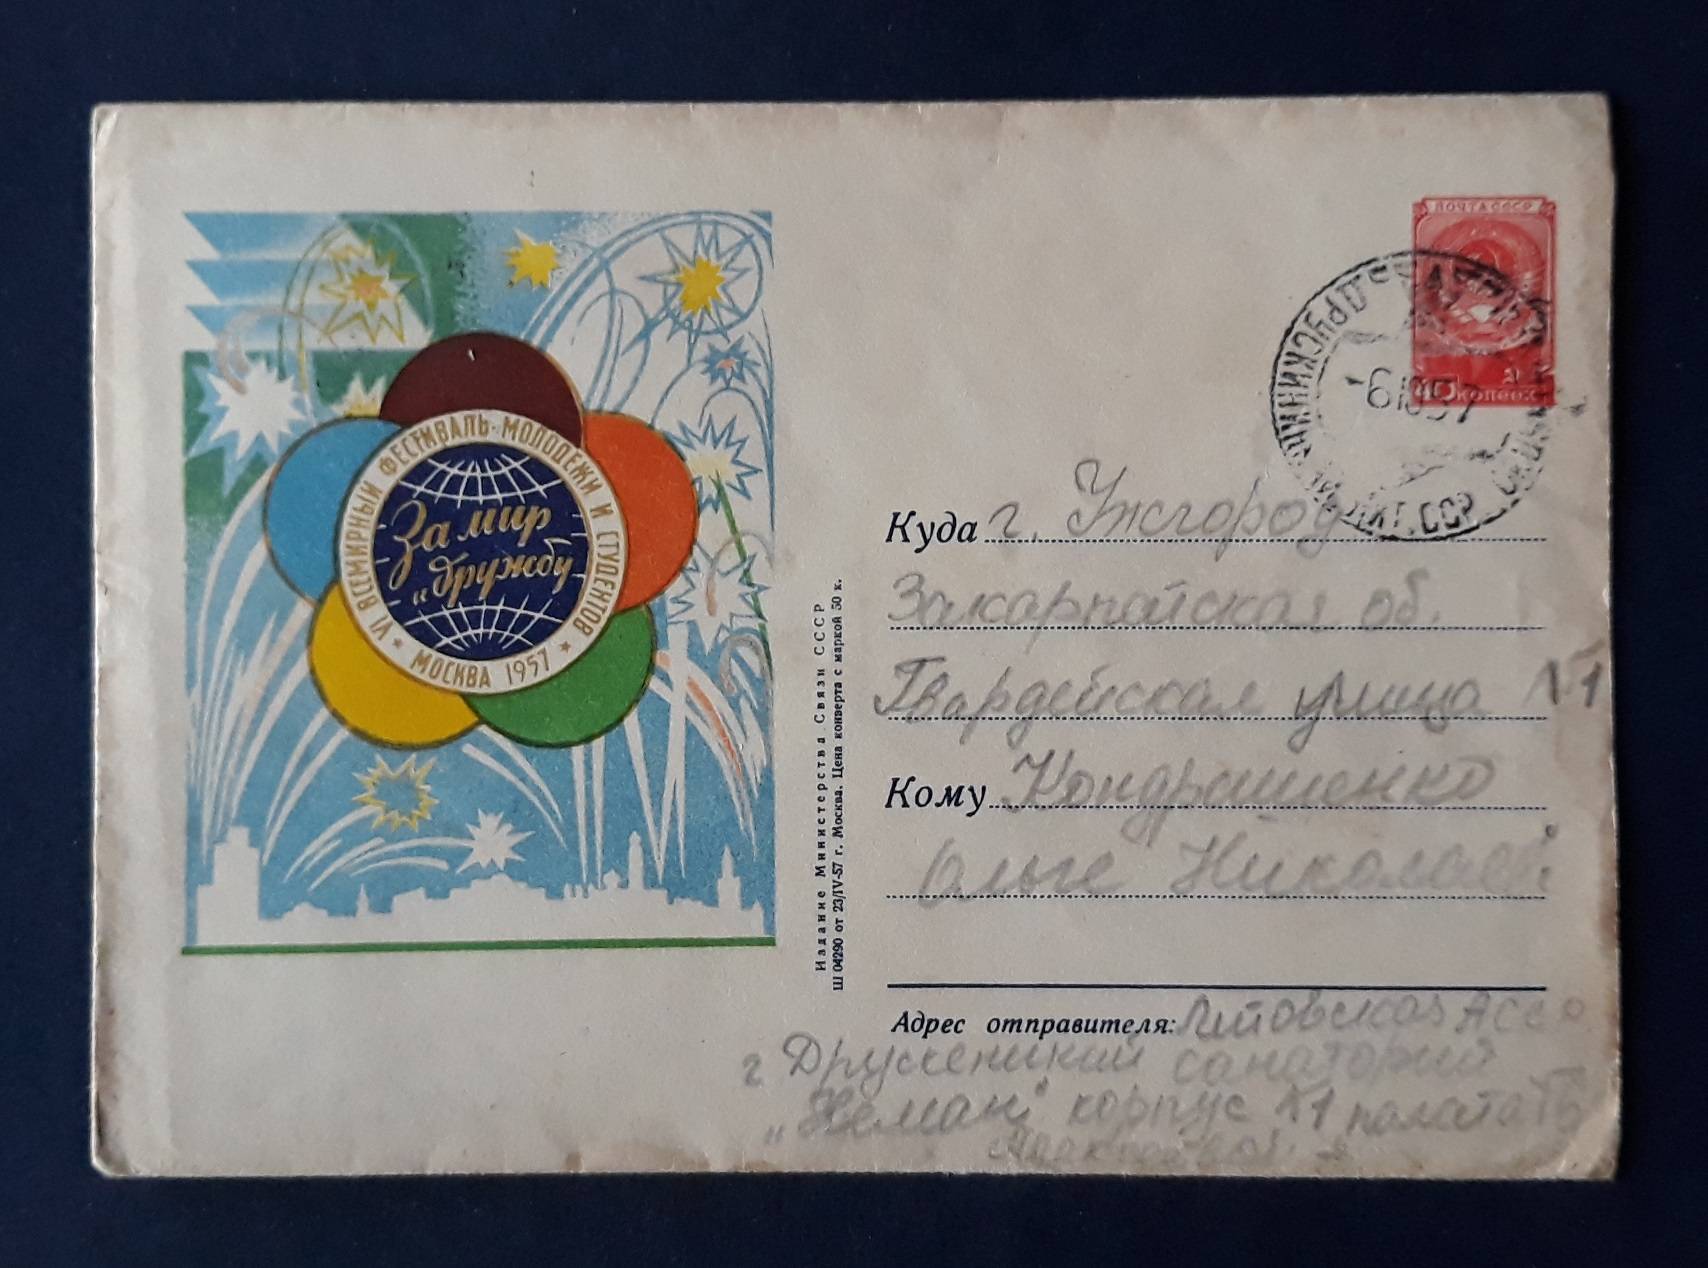 VI ВСЕМИРНЫЙ ФЕСТИВАЛЬ МОЛОДЕЖИ И СТУДЕНТОВ
★ МОСКВА 1957 ★
За мир
и дружбу
Издание Министерства Связи СССР
Ш 04290 от 23/IV-57 г. Москва. Цена конверта с маркой 50 к.
ПОЧТА СССР
40 КОПЕЕК
ДРУСКИНИНКАЙ
ЛИТ. ССР
-6 10 57
Куда г. Ужгород
Закарпатская об.
Гвардейская улица №1
Кому Кондрашенко
Ольге Николаев
Адрес отправителя: Литовская АССР
г Друскеники санаторий
„Неман" корпус №1 палата